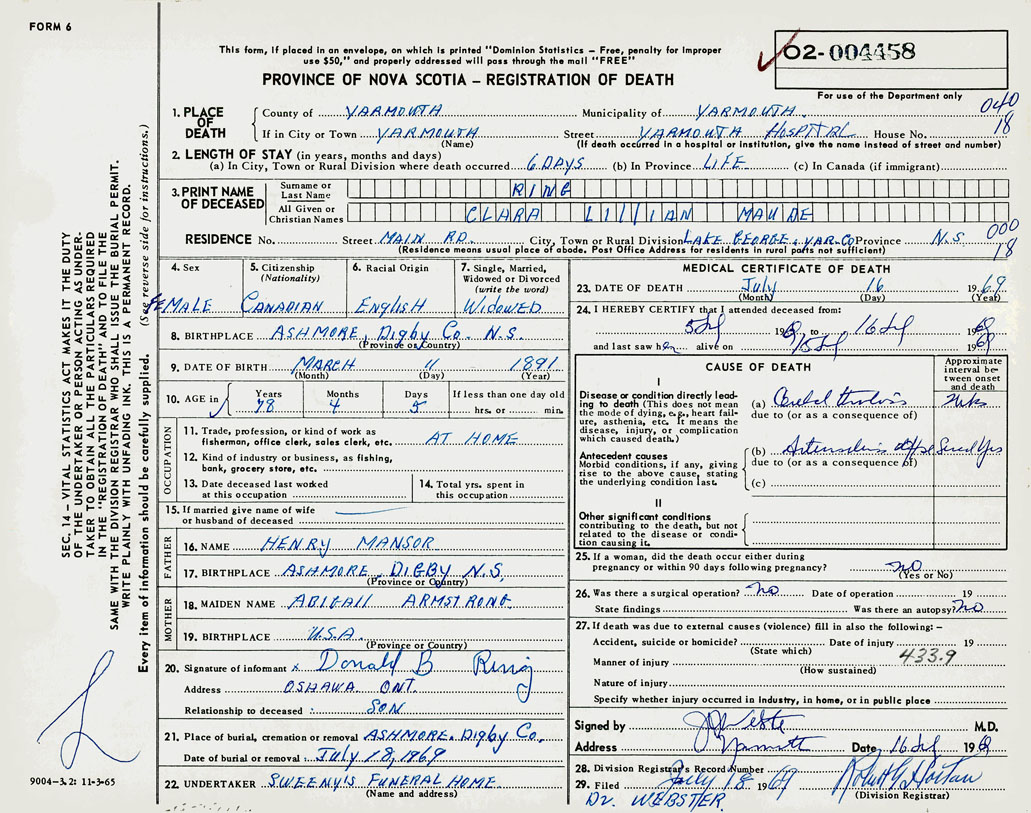 FORM 6
This form, if placed in an envelope, on which is printed "Dominion Statistics – Free, penalty for improper
use $50," and properly addressed will pass through the mail "FREE"
PROVINCE OF NOVA SCOTIA – REGISTRATION OF DEATH
O2-004458
For use of the Department only
040
18
1. PLACE OF DEATH County of YARMOUTH Municipality of YARMOUTH
If in City or Town YARMOUTH Street YARMOUTH HOSPITAL House No.
(Name) (If death occurred in a hospital or institution, give the name instead of street and number)
2. LENGTH OF STAY (in years, months and days)
(a) In City, Town or Rural Division where death occurred 6 DAYS (b) In Province LIFE (c) In Canada (if immigrant)
3. PRINT NAME OF DECEASED
Surname or Last Name RING
All Given or Christian Names CLARA LILLIAN MAUDE
RESIDENCE No. Street MAIN RD. City, Town or Rural Division LAKE GEORGE, YAR. CO Province N.S.
000
18
(Residence means usual place of abode. Post Office Address for residents in rural parts not sufficient)
4. Sex FEMALE
5. Citizenship (Nationality) CANADIAN
6. Racial Origin ENGLISH
7. Single, Married, Widowed or Divorced (write the word) WIDOWED
8. BIRTHPLACE ASHMORE, Digby Co. N.S.
(Province or Country)
9. DATE OF BIRTH MARCH 11 1891
(Month) (Day) (Year)
10. AGE in Years 78 Months 4 Days 5 If less than one day old hrs. or min.
OCCUPATION
11. Trade, profession, or kind of work as
fisherman, office clerk, sales clerk, etc. AT HOME
12. Kind of industry or business, as fishing,
bank, grocery store, etc.
13. Date deceased last worked
at this occupation
14. Total yrs. spent in
this occupation
15. If married give name of wife
or husband of deceased
FATHER
16. NAME HENRY MANSOR
17. BIRTHPLACE ASHMORE, DIGBY N.S.
(Province or Country)
MOTHER
18. MAIDEN NAME ABIGAIL ARMSTRONG
19. BIRTHPLACE U.S.A.
(Province or Country)
20. Signature of informant x Donald B Ring
Address OSHAWA ONT.
Relationship to deceased SON
21. Place of burial, cremation or removal ASHMORE, Digby Co.
Date of burial or removal July 18, 1969
22. UNDERTAKER SWEENY'S FUNERAL HOME
(Name and address)
MEDICAL CERTIFICATE OF DEATH
23. DATE OF DEATH July 16 1969
(Month) (Day) (Year)
24. I HEREBY CERTIFY that I attended deceased from:
1969 to 16 1969
and last saw her alive on 15 1969
CAUSE OF DEATH
Approximate interval between onset and death
I
Disease or condition directly leading to death (This does not mean
the mode of dying, e.g., heart failure, asthenia, etc. It means the
disease, injury, or complication
which caused death.)
(a)
due to (or as a consequence of)
Antecedent causes
Morbid conditions, if any, giving
rise to the above cause, stating
the underlying condition last.
(b)
due to (or as a consequence of)
(c)
II
Other significant conditions
contributing to the death, but not
related to the disease or condition causing it.
25. If a woman, did the death occur either during
pregnancy or within 90 days following pregnancy? NO
(Yes or No)
26. Was there a surgical operation? No Date of operation 19
State findings Was there an autopsy? No
27. If death was due to external causes (violence) fill in also the following: –
Accident, suicide or homicide? Date of injury 19
(State which)
433.9
Manner of injury
(How sustained)
Nature of injury
Specify whether injury occurred in industry, in home, or in public place
Signed by M.D.
Address Yarmouth Date 16 1969
28. Division Registrar's Record Number
29. Filed July 18 1969
(Division Registrar)
Dr. WEBSTER
SEC. 14 – VITAL STATISTICS ACT MAKES IT THE DUTY
OF THE UNDERTAKER OR PERSON ACTING AS UNDERTAKER TO OBTAIN ALL THE PARTICULARS REQUIRED
IN THE "REGISTRATION OF DEATH" AND TO FILE THE
SAME WITH THE DIVISION REGISTRAR WHO SHALL ISSUE THE BURIAL PERMIT.
WRITE PLAINLY WITH UNFADING INK. THIS IS A PERMANENT RECORD.
Every item of information should be carefully supplied. (See reverse side for instructions.)
9004-3.2: 11-3-65